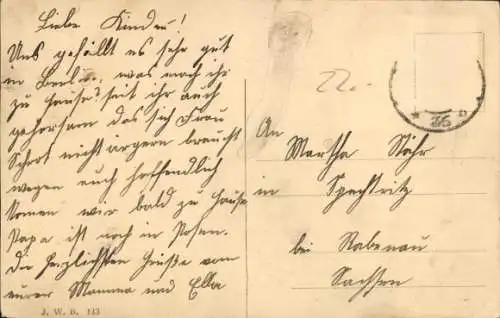 Liebe Kinder!
Uns gefällt es sehr gut
in Berlin, was macht ihr
zu Hause? seit ihr auch
gehorsam das sich Frau
Schrot nicht ärgern braucht
wegen euch hoffendlich
komen wir bald zu Hause
Papa ist noch in Posen.
Die herzlichsten Grüße von
eurer Mamma und Ella
J. W. B. 143
22.-
36
An
Martha Stöhr
in Spechtritz
bei Rabenau
Sachsen